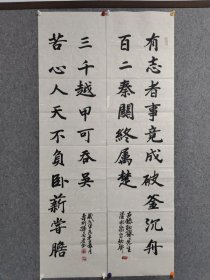 有志者事竟成破釜沉舟
百二秦關終属楚
苦心人天不負卧薪嘗膽
三千越甲可吞吴